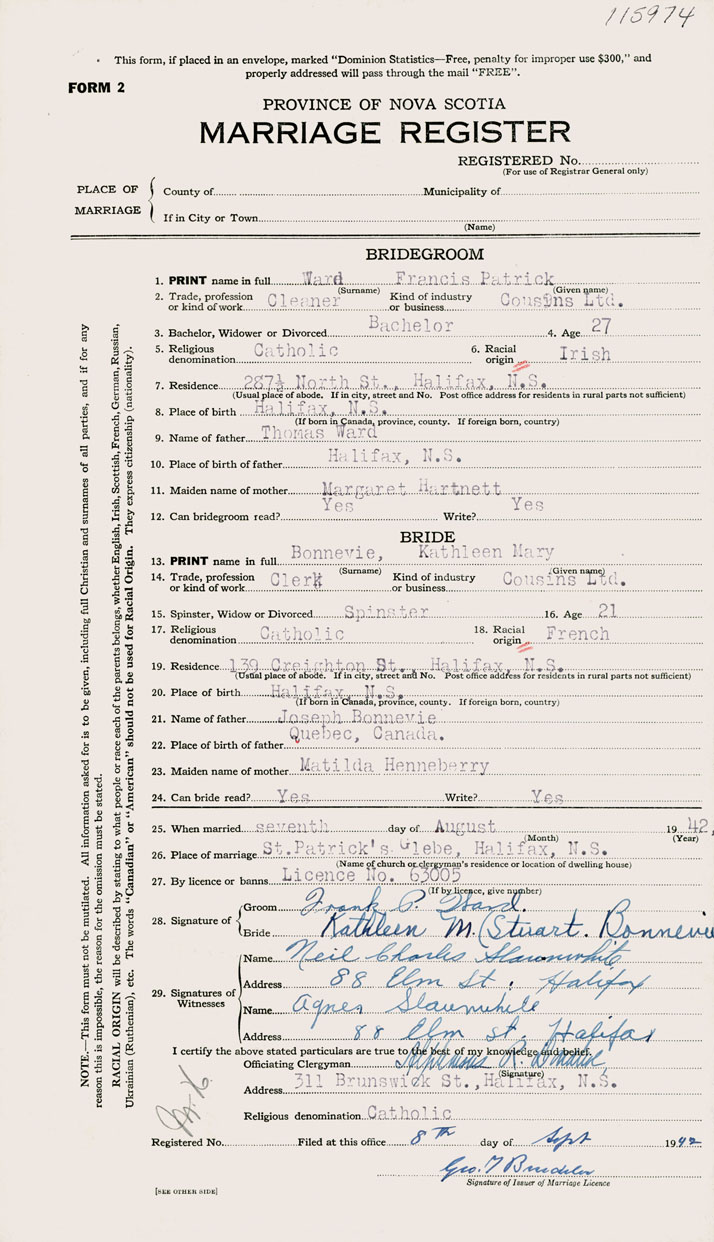 115974
This form, if placed in an envelope, marked "Dominion Statistics—Free, penalty for improper use $300," and
properly addressed will pass through the mail "FREE".
FORM 2
PROVINCE OF NOVA SCOTIA
MARRIAGE REGISTER
REGISTERED No.
(For use of Registrar General only)
PLACE OF MARRIAGE
County of Municipality of
If in City or Town
(Name)
BRIDEGROOM
1. PRINT name in full Ward Francis Patrick
(Surname) (Given name)
2. Trade, profession or kind of work Cleaner Kind of industry or business Cousins Ltd.
3. Bachelor, Widower or Divorced Bachelor 4. Age 27
5. Religious denomination Catholic 6. Racial origin Irish
7. Residence 287½ North St., Halifax, N.S.
(Usual place of abode. If in city, street and No. Post office address for residents in rural parts not sufficient)
8. Place of birth Halifax, N.S.
(If born in Canada, province, county. If foreign born, country)
9. Name of father Thomas Ward
10. Place of birth of father Halifax, N.S.
11. Maiden name of mother Margaret Hartnett
12. Can bridegroom read? Yes Write? Yes
BRIDE
13. PRINT name in full Bonnevie, Kathleen Mary
(Surname) (Given name)
14. Trade, profession or kind of work Clerk Kind of industry or business Cousins Ltd.
15. Spinster, Widow or Divorced Spinster 16. Age 21
17. Religious denomination Catholic 18. Racial origin French
19. Residence 139 Creighton St., Halifax, N.S.
(Usual place of abode. If in city, street and No. Post office address for residents in rural parts not sufficient)
20. Place of birth Halifax, N.S.
(If born in Canada, province, county. If foreign born, country)
21. Name of father Joseph Bonnevie
22. Place of birth of father Quebec, Canada.
23. Maiden name of mother Matilda Henneberry
24. Can bride read? Yes Write? Yes
25. When married seventh day of August 1942,
(Month) (Year)
26. Place of marriage St.Patrick's Glebe, Halifax, N.S.
(Name of church or clergyman's residence or location of dwelling house)
27. By licence or banns Licence No. 63005
(If by licence, give number)
28. Signature of
Groom Frank P. Ward.
Bride Kathleen M. (Stuart. Bonnevie
29. Signatures of Witnesses
Name Neil Charles Slaunwhite
Address 88 Elm St. Halifax
Name Agnes Slaunwhite
Address 88 Elm st. Halifax
I certify the above stated particulars are true to the best of my knowledge and belief.
Officiating Clergyman Alphonsus R.
(Signature)
Address 311 Brunswick St., Halifax, N.S.
Religious denomination Catholic
Registered No. Filed at this office 8th day of Sept 1942
Geo. T
Signature of Issuer of Marriage Licence
[SEE OTHER SIDE]
NOTE.—This form must not be mutilated. All information asked for is to be given, including full Christian and surnames of all parties, and if for any
reason this is impossible, the reason for the omission must be stated.
RACIAL ORIGIN will be described by stating to what people or race each of the parents belongs, whether English, Irish, Scottish, French, German, Russian,
Ukrainian (Ruthenian), etc. The words "Canadian" or "American" should not be used for Racial Origin. They express citizenship (nationality).